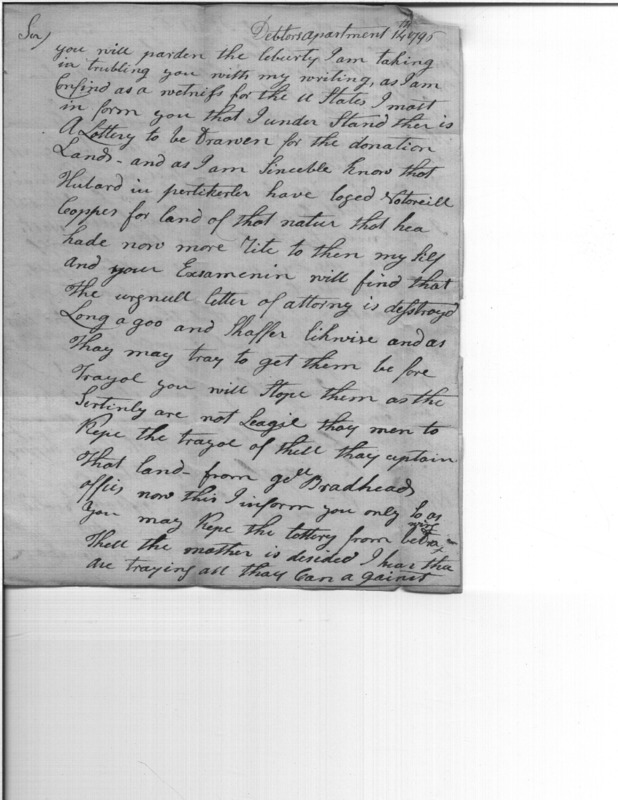 Debtors apartment 14th 1795
Sir/
you will parden the leburty I am taking
in trubling you with my writing, as I am
Confind as a wetness for the u States I mast
in form you that I under Stand ther is
A Lottery to be Drawen for the donation
Lands - and as I am Sinceble know that
Hubard in pertikerler have loged Notoreill
Coppes for land of that natur that hea
hade now more Tite to then my self
and your Exsamenin will find that
the urgnull letter of attorny is desstroyd
Long agoo and Shaffer likwize and as
thay may tray to get them be fore
Trayol you will stope them as the
Sertinly are not Leagil thay men to
Kepe the trayol of thell thay optain
that land - from gell Bradheads
offis, now this I inform you only so as
you may Kepe the lottery from
thell the mather is desided I hear tha
are traying all thay Can a gainst